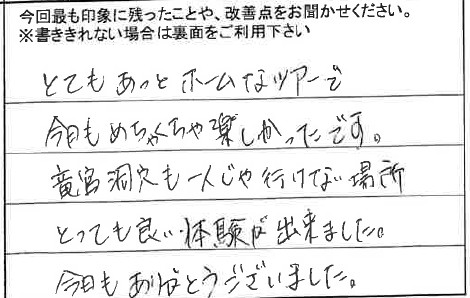 今回最も印象に残ったことや、改善点をお聞かせください。
※書ききれない場合は裏面をご利用下さい
とてもあっとホームなツアーで
今日もめちゃくちゃ楽しかったです。
竜宮洞穴も一人じゃ行けない場所
とっても良い体験が出来ました。
今日もありがとうございました。